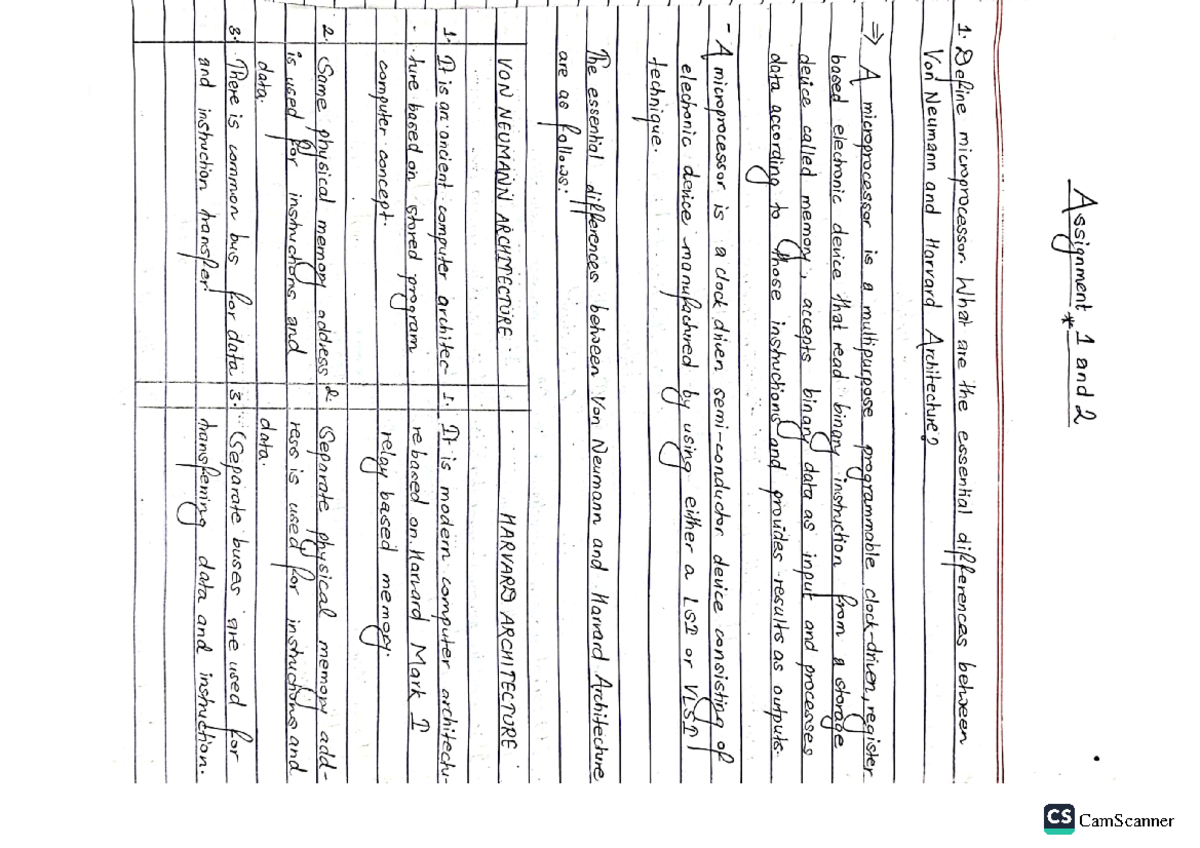 Assignment 1 and 2
*
1. Define microprocessor. What are the essential differences between
Von Neumann and Harvard Architecture?
⇒ A microprocessor is a multipurpose programmable clock-driven, register
based electronic device that read binary instruction from a storage
device called memory, accepts binary data as input and processes
data according to those instructions and provides results as outputs.
- A microprocessor is a clock driven semi-conductor device consisting of
electronic device manufactured by using either a LSI or VLSI
technique.
The essential differences between Von Neumann and Harvard Architecture
are as follows:
VON NEUMANN ARCHITECTURE HARVARD ARCHITECTURE
1. It is an ancient computer architec- 1. It is modern computer architectu-
ture based on stored program re based on Harvard Mark I
computer concept. relay based memory.
2. Same physical memory address 2. Separate physical memory add-
is used for instructions and ress is used for instructions and
data. data.
3. There is common bus for data 3. Separate buses are used for
and instruction transfer. transfering data and instruction.
CS CamScanner